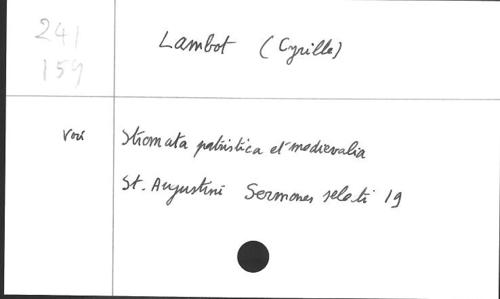 241 Lambot (Cyrille)
159
Voir Stromata patristica et medievalia
St. Augustini Sermones selecti 19